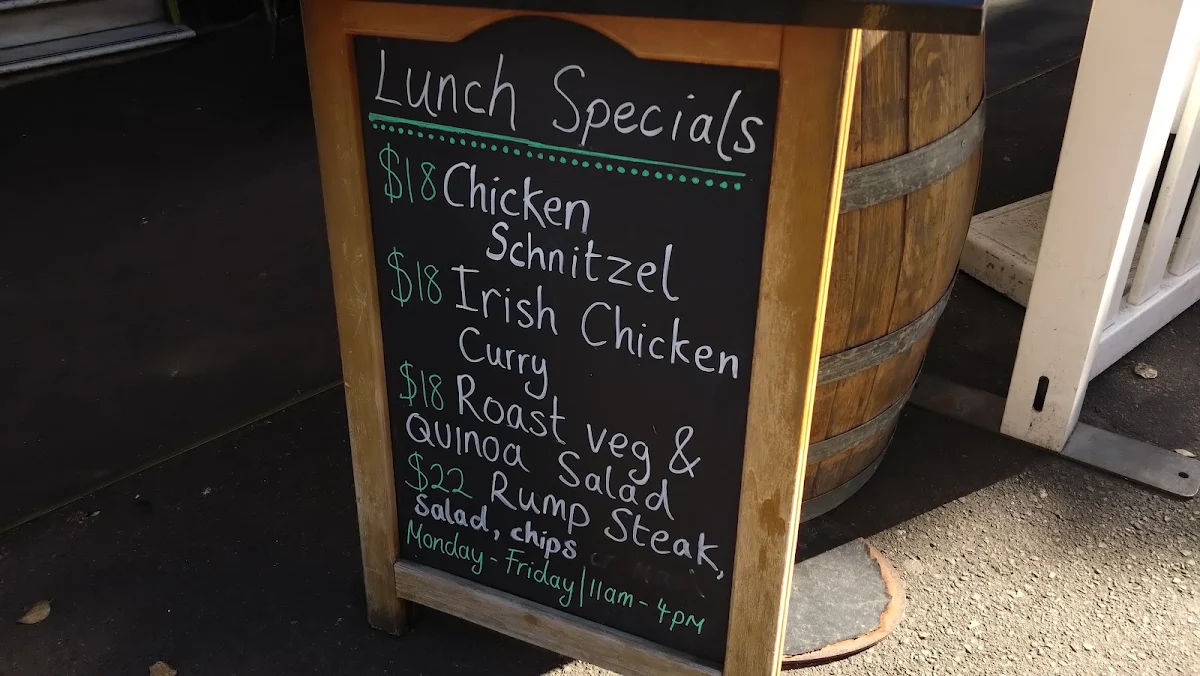 Lunch Specials
$18 Chicken
Schnitzel
$18 Irish Chicken
Curry
$18 Roast veg &
QUINOA Salad
$22 Rump Steak,
Salad, chips
Monday - Friday | 11am - 4pm